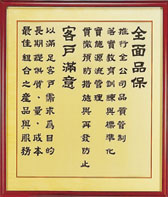 全面品保
推行全公司品質管制
落實教育訓練與標準化
貫徹源流管理
貫徹預防措施與再發防止
客戶滿意
以滿足客戶需求為目的
長期提供質、量、成本
最佳組合之產品與服務